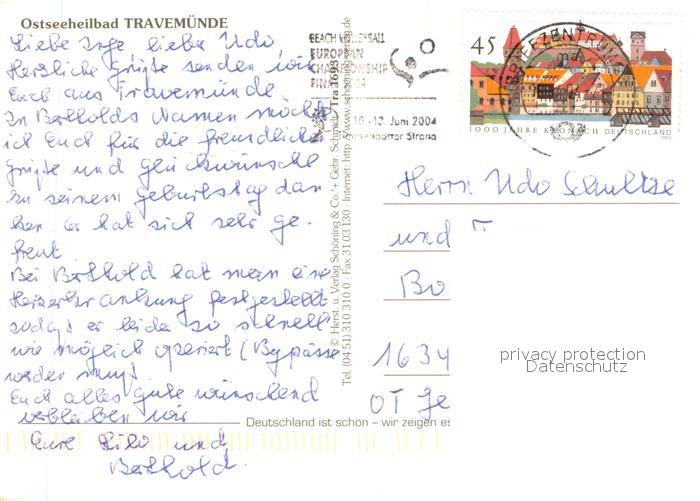 Ostseeheilbad TRAVEMÜNDE
Liebe Inge lieber Udo
Herzliche Grüße senden wir
Euch aus Travemünde
In Bertholds Namen möchte
ich Euch für die freundlichen
Grüße und Glückwünsche
zu seinem Geburtstag dan
ken er hat sich sehr ge-
freut
Bei Berthold hat man eine
Herzerkrankung festgestellt
sodaß er leider so schnell
wie möglich operiert (Bypässe
werden muß
Euch alles gute wünschend
verbleiben wir
Eure Lilo und
Berthold.
© Herst. u. Verlag Schöning & Co. + Gebr. Schmidt / Tra 1693
Tel. (04 51) 310 310 0 · Fax 31 03 130 · Internet: http://www.schoening-verlag.de
BEACH VOLLEYBALL
EUROPEAN
CHAMPIONSHIP
10-13. Juni 2004
Strand
BRIEFZENTRUM
45
1000 JAHRE KRONACH DEUTSCHLAND
Herrn Udo Schultze
und
Bo
1634
OT Ge
privacy protection
Datenschutz
Deutschland ist schön – wir zeigen es